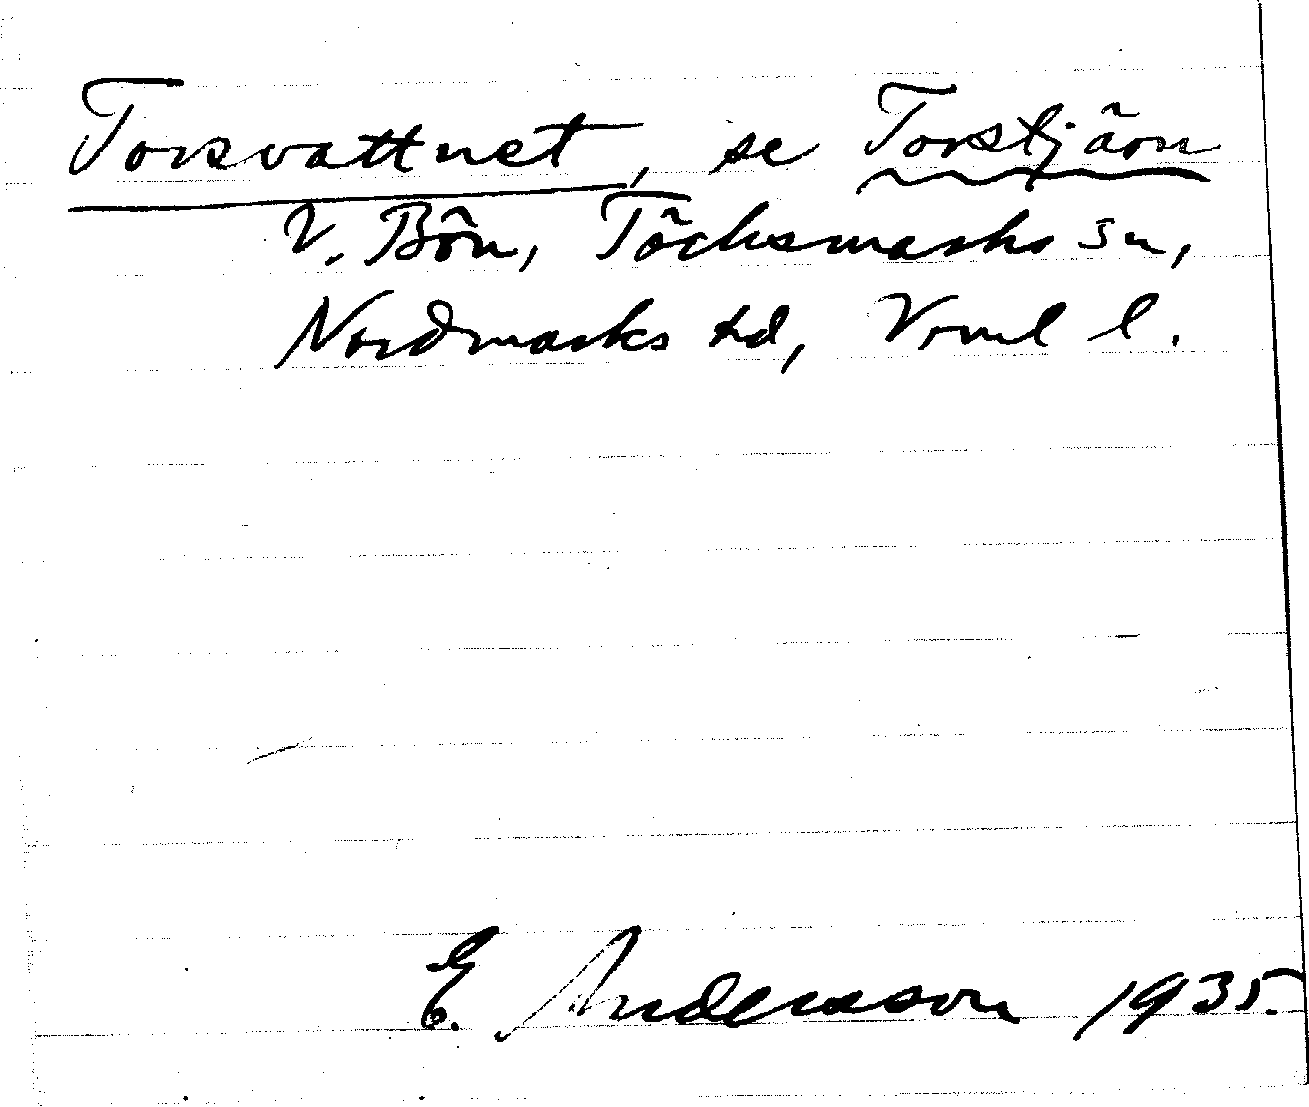 Torsvattnet, se Torstjärn
V. Bön, Töcksmarks sn,
Nordmarks hd, Vrml l.
E. Andersson 1935.